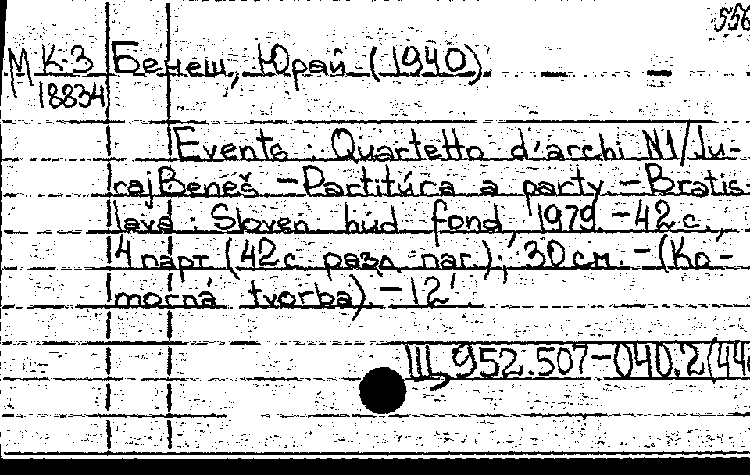 556
М К-3 Бенеш, Юрай (1940)
18834
Events : Quartetto d'archi N1/Ju-
raj Beneš – Partitúra a party – Bratis-
lava : Sloven húd fond, 1979. – 42 с.,
4 парт (42 с разд паг.); 30 см. – (Ko-
morná tvorba). – 12'.
Ш 952.507-040.2(44